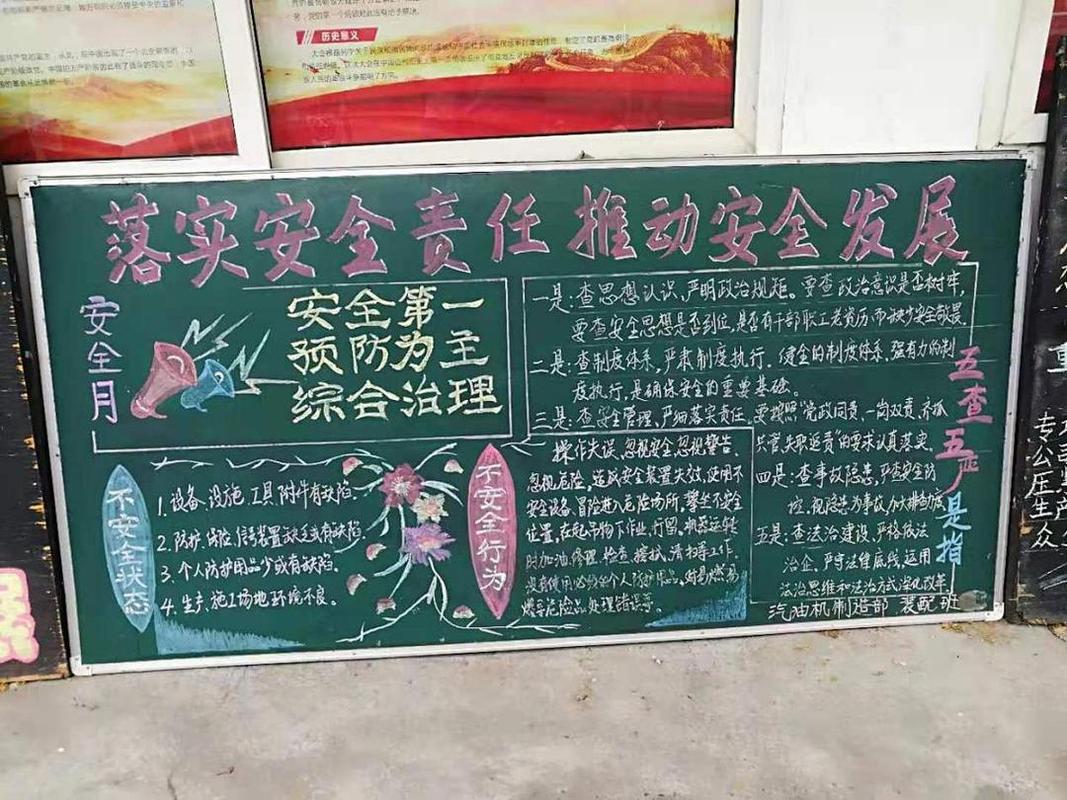 历史意义
落实安全责任 推动安全发展
安全月
安全第一
预防为主
综合治理
一是:查思想认识,严明政治规矩。要查政治意识是否树牢,
要查安全思想是否到位,是否有干部职工老资历而缺少安全敬畏
二是:查制度体系,严肃制度执行。健全的制度体系,强有力的制
度执行,是确保安全的重要基础。
三是:查安全管理,严细落实责任。要按照“党政同责、一岗双责、齐抓
共管、失职追责”的要求认真落实。
四是:查事故隐患,严查安全防
控,视隐患为事故,加大排查力度
五是:查法治建设,严格依法
治企,严守法律底线,运用
法治思维和法治方式深化改革
五查五严是指
不安全状态
1.设备、设施、工具、附件有缺陷.
2.防护、保险、信号装置缺乏或有缺陷.
3.个人防护用品少或有缺陷.
4.生产、施工场地环境不良.
不安全行为
操作失误、忽视安全、忽视警告、
忽视危险、造成安全装置失效、使用不
安全设备、冒险进入危险场所、攀坐不安全
位置、在起吊物下作业、停留、机器运转
时加油、修理、检查、擦拭、清扫等工作、
没有使用必须的个人防护用品、对易燃易
爆等危险品处理错误等。
汽油机制造部 装配班